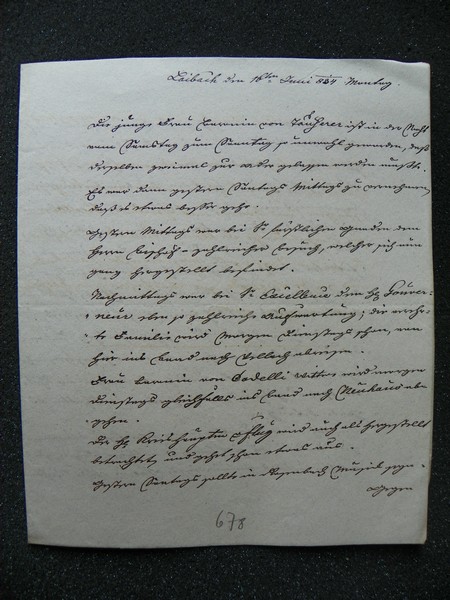 Laibach den 16ten Juni 834 Montag.
Die junge Frau Baronin von Taufferer ist in der Nacht
vom Samstag zum Sonntag so unwohl geworden, daß
derselben zweimal zur Ader gelassen werden mußte.
Es war dann gestern Sonntags Mittags zu vernehmen,
daß es etwas besser gehe.
Gestern Mittags war bei Sr fürstlichen Gnaden dem
Herrn Bischof zahlreicher Besuch, welcher sich nun
ganz hergestellt befindet.
Nachmittags war bei Sr Excellenz dem H. Gouver-
neur eben so zahlreiche Aufwartung; die verehr-
te Familie wird Morgen Dienstags schon, von
hier ins Land nach abreisen.
Frau Baronin von Codelli Witwe wird morgen
Dienstags gleichfalls ins Land nach Neuhaus ab-
gehen.
Der H. Kreishauptm. Pflug wird auch als hergestellt
betrachtet, und gehet schon etwas aus.
Gestern Sonntags sollte in Musik seyn.
678